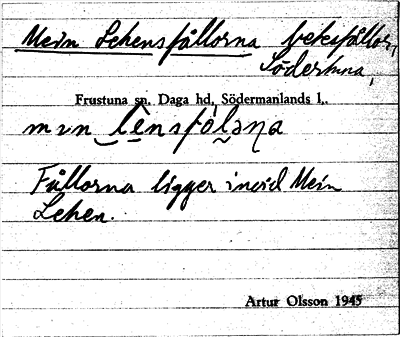 Mein Lehensfållorna betesfållor,
Södertuna,
Frustuna sn, Daga hd, Södermanlands l,.
Fållorna ligger invid Mein
Lehen.
Artur Olsson 1945